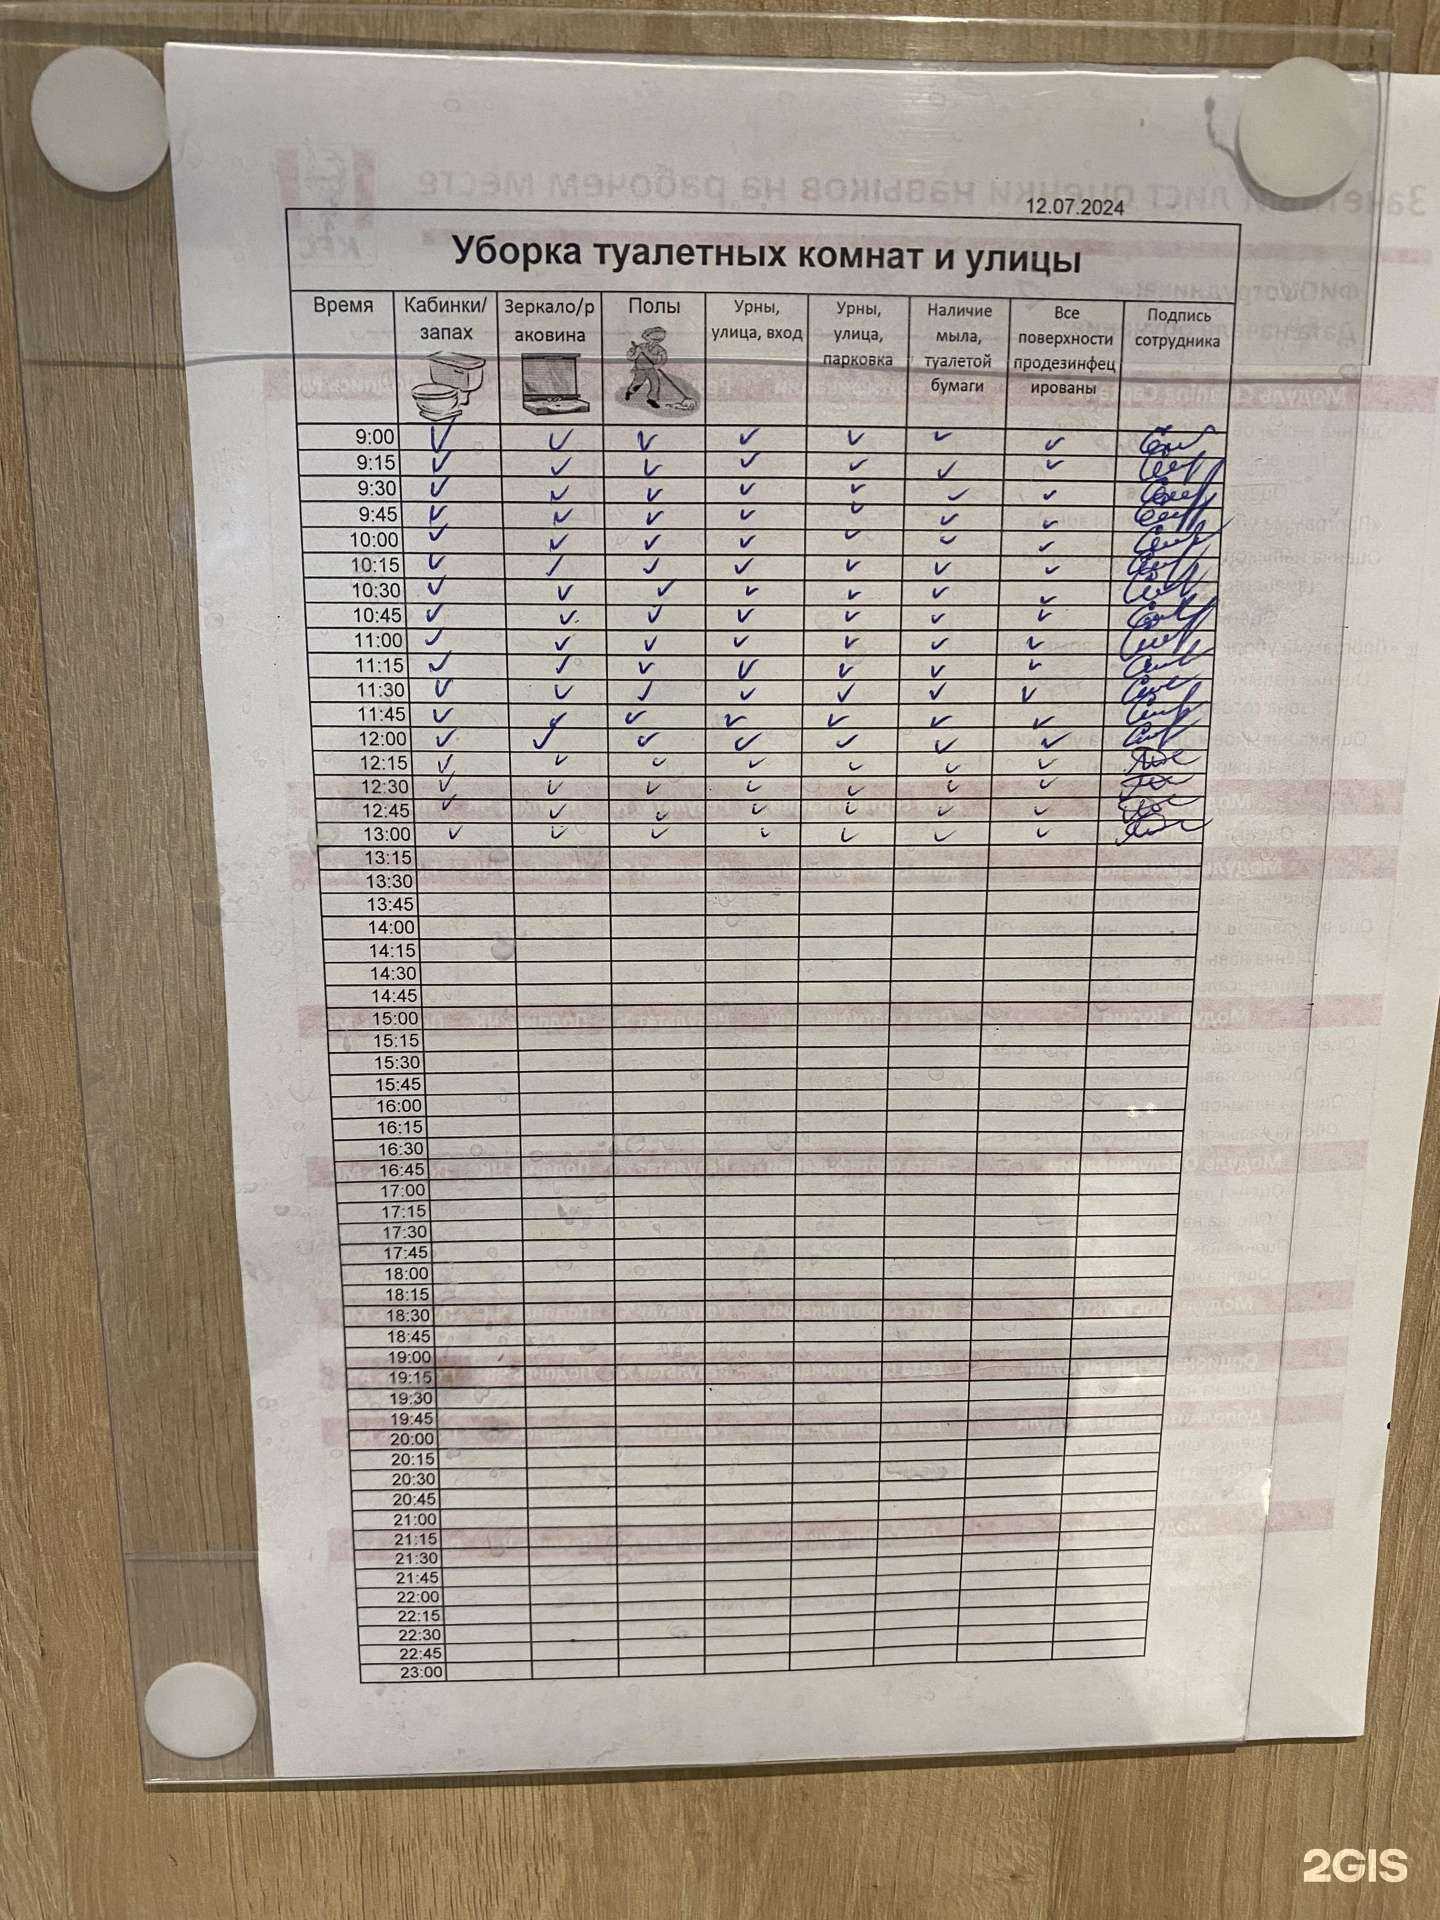 12.07.2024
Уборка туалетных комнат и улицы
Время
Кабинки/
запах
Зеркало/р
аковина
Полы
Урны,
улица, вход
Урны,
улица,
парковка
Наличие
мыла,
туалетой
бумаги
Все
поверхности
продезинфец
ированы
Подпись
сотрудника
9:00
9:15
9:30
9:45
10:00
10:15
10:30
10:45
11:00
11:15
11:30
11:45
12:00
12:15
12:30
12:45
13:00
13:15
13:30
13:45
14:00
14:15
14:30
14:45
15:00
15:15
15:30
15:45
16:00
16:15
16:30
16:45
17:00
17:15
17:30
17:45
18:00
18:15
18:30
18:45
19:00
19:15
19:30
19:45
20:00
20:15
20:30
20:45
21:00
21:15
21:30
21:45
22:00
22:15
22:30
22:45
23:00
2GIS